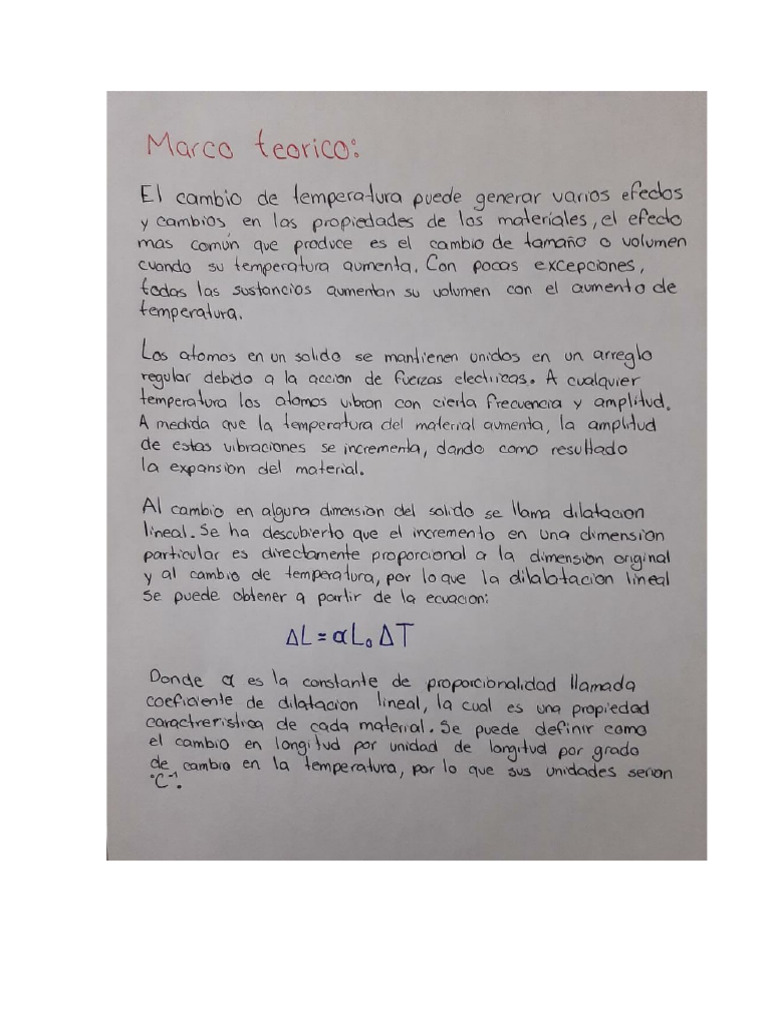 Marco teorico:
El cambio de temperatura puede generar varios efectos
y cambios en las propiedades de los materiales, el efecto
mas común que produce es el cambio de tamaño o volumen
cuando su temperatura aumenta. Con pocas excepciones,
todas las sustancias aumentan su volumen con el aumento de
temperatura.
Los atomos en un solido se mantienen unidos en un arreglo
regular debido a la accion de fuerzas electricas. A cualquier
temperatura los atomos vibran con cierta frecuencia y amplitud.
A medida que la temperatura del material aumenta, la amplitud
de estas vibraciones se incrementa, dando como resultado
la expansion del material.
Al cambio en alguna dimension del solido se llama dilatacion
lineal. Se ha descubierto que el incremento en una dimension
particular es directamente proporcional a la dimension original
y al cambio de temperatura, por lo que la dilalatacion lineal
se puede obtener a partir de la ecuacion:
ΔL = αL₀ ΔT
Donde α es la constante de proporcionalidad llamada
coeficiente de dilatacion lineal, la cual es una propiedad
caractreristica de cada material. Se puede definir como
el cambio en longitud por unidad de longitud por grado
de cambio en la temperatura, por lo que sus unidades serian
°C⁻¹.